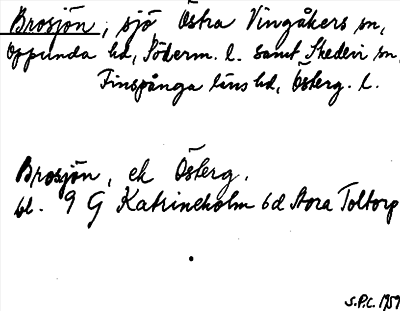 Brosjön, sjö Östra Vingåkers sn,
Oppunda hd, Söderm. l. samt Skedevi sn,
Finspånga läns hd, Österg. l.
Brosjön, ek Österg.
bl. 9 G Katrineholm 6d Stora Toltorp
S.P.C. 1959